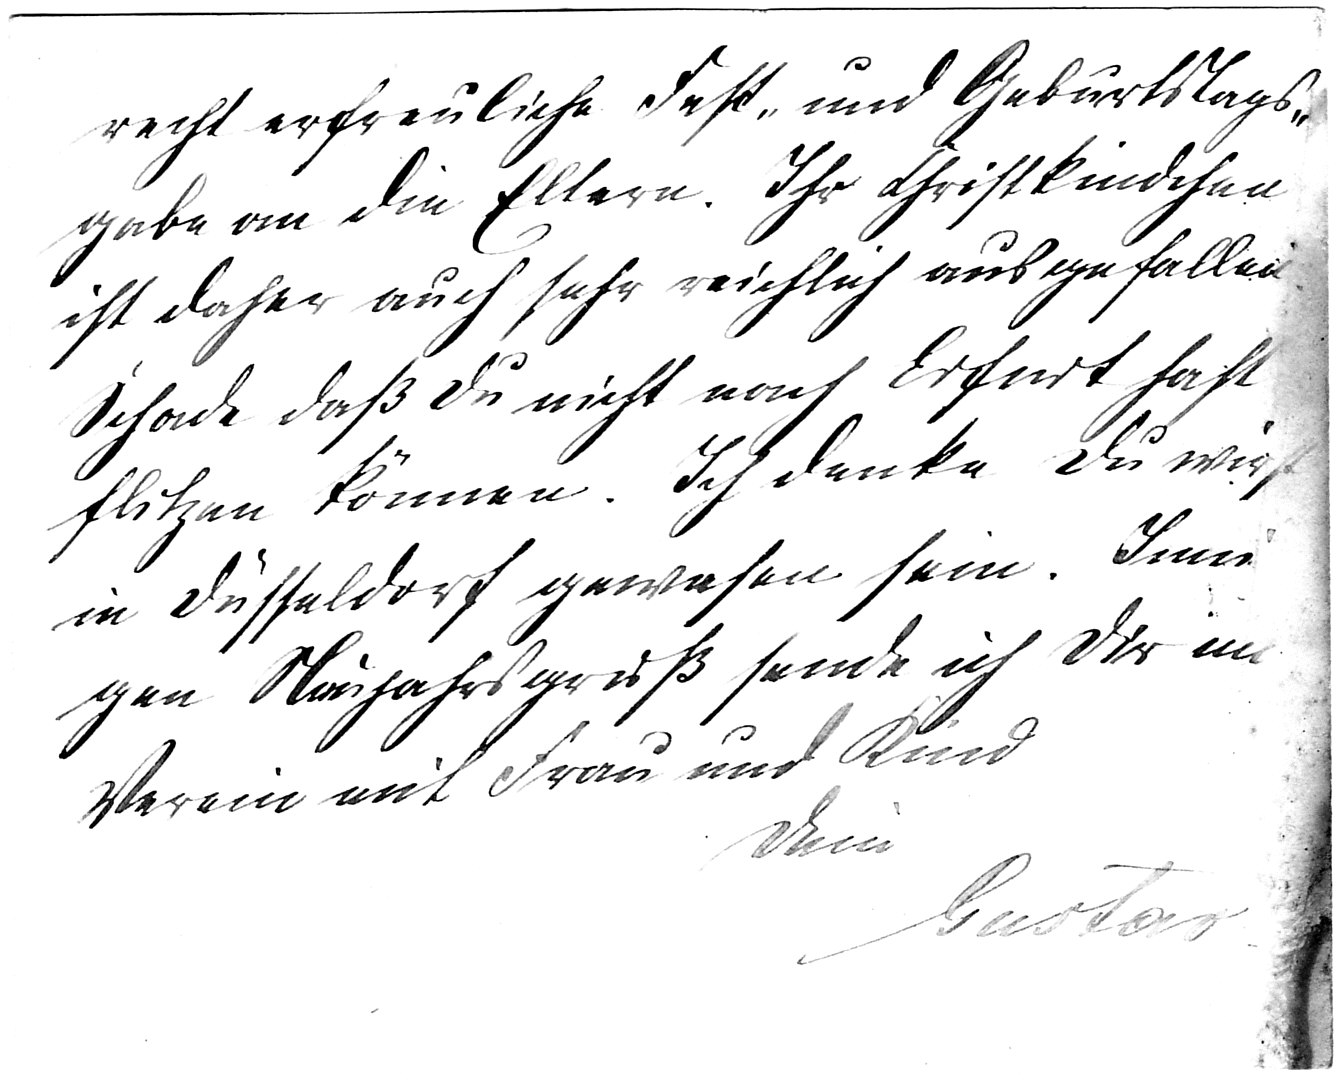 recht erfreuliche Fest- und Geburtstags-
gabe an die Eltern. Ihr Christkindchen
ist daher auch sehr reichlich ausgefallen
Schade daß Du nicht nach Erfurt hast
flitzen können. Ich denke Du wirst
in Düsseldorf gewesen sein. Inni
gen Neujahrsgruß sende ich Dir im
Verein mit Frau und Kind
Dein
Gustav